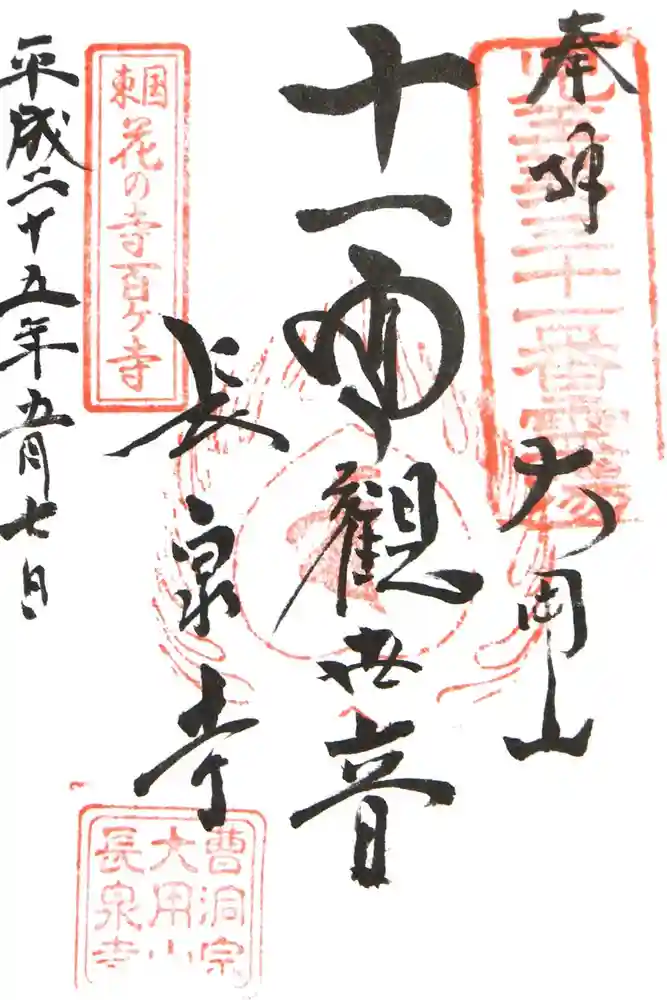 奉拝
三十一番霊場
大用山
十一面觀世音
長泉寺
東国
花の寺百ヶ寺
平成二十五年五月七日
曹洞宗
大用山
長泉寺